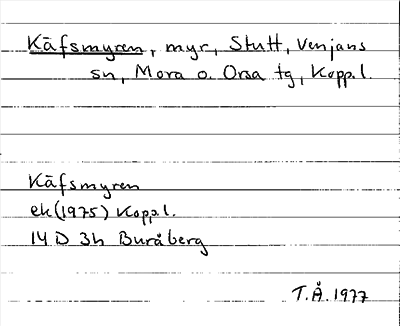 Kåfsmyren, myr, Stutt, Venjans
sn, Mora o. Orsa tg, Kopp.l.
Kåfsmyren
ek (1975) Kopp.l.
14 D 3h Buråberg
T.Å. 1977